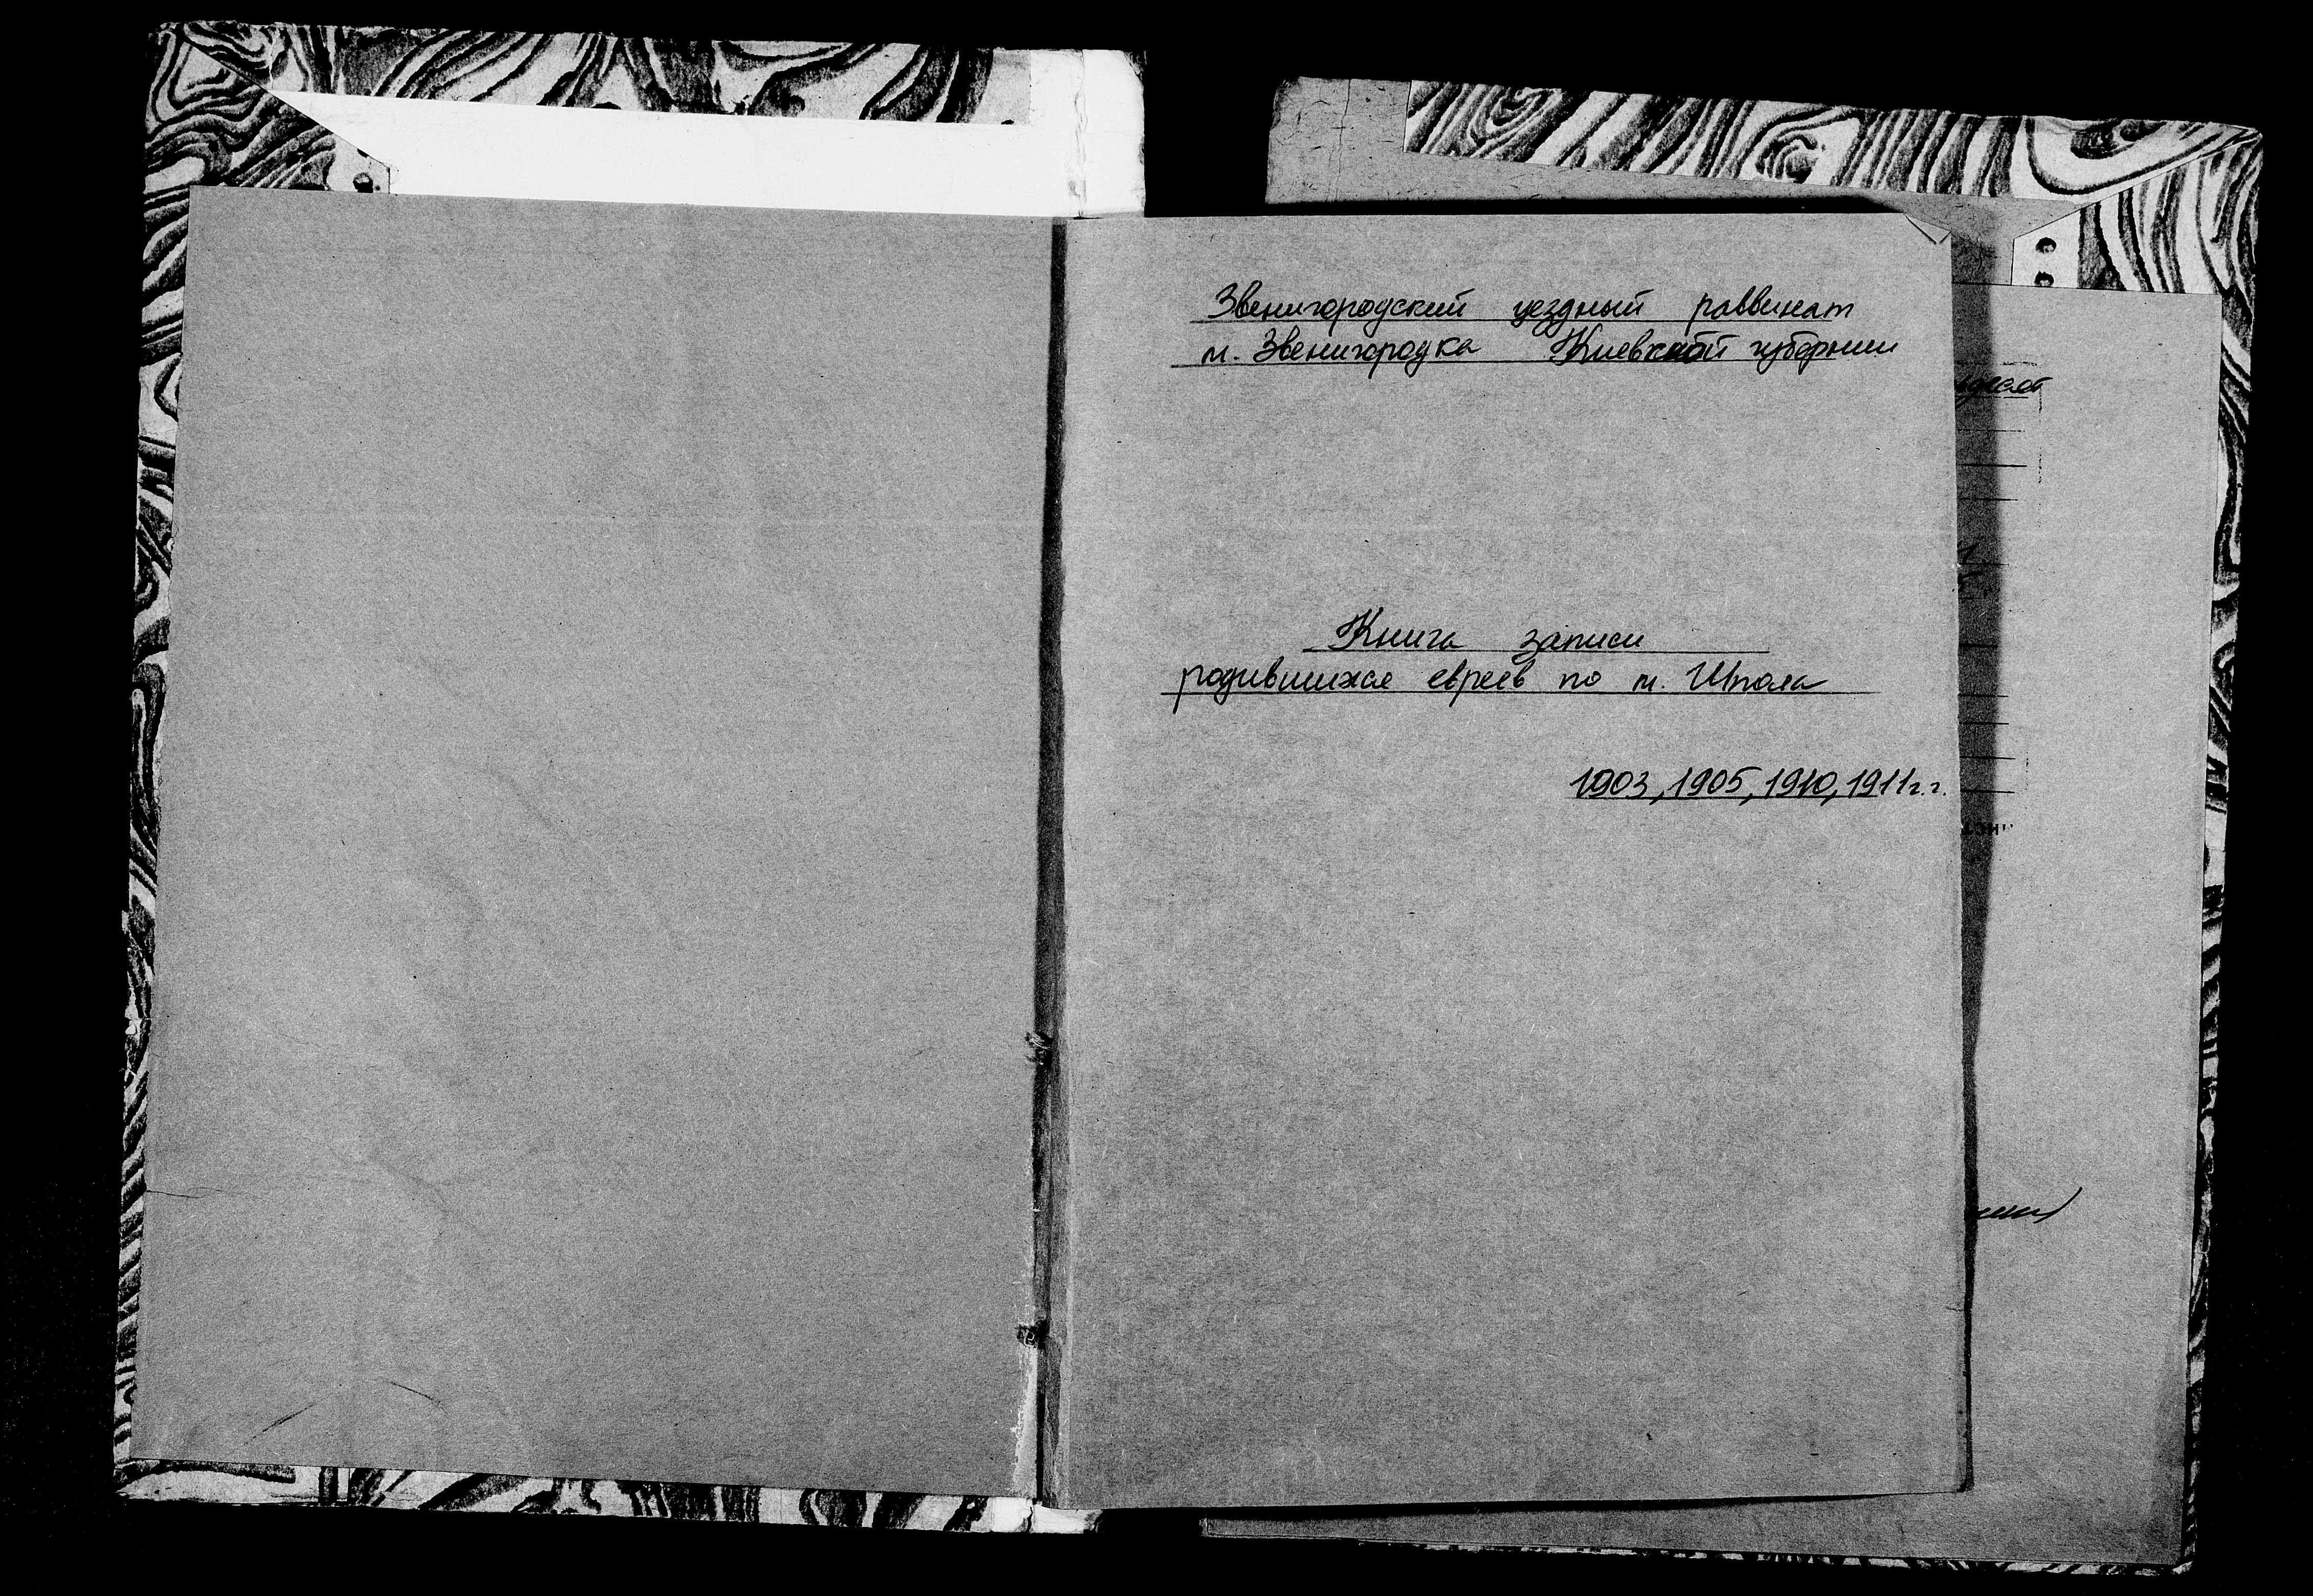 Звенигородский уездный раввинат
м. Звенигородка Киевской губернии
Книга записи
родившихся евреев по м. Шпола
1903, 1905, 1910, 1911 г.г.